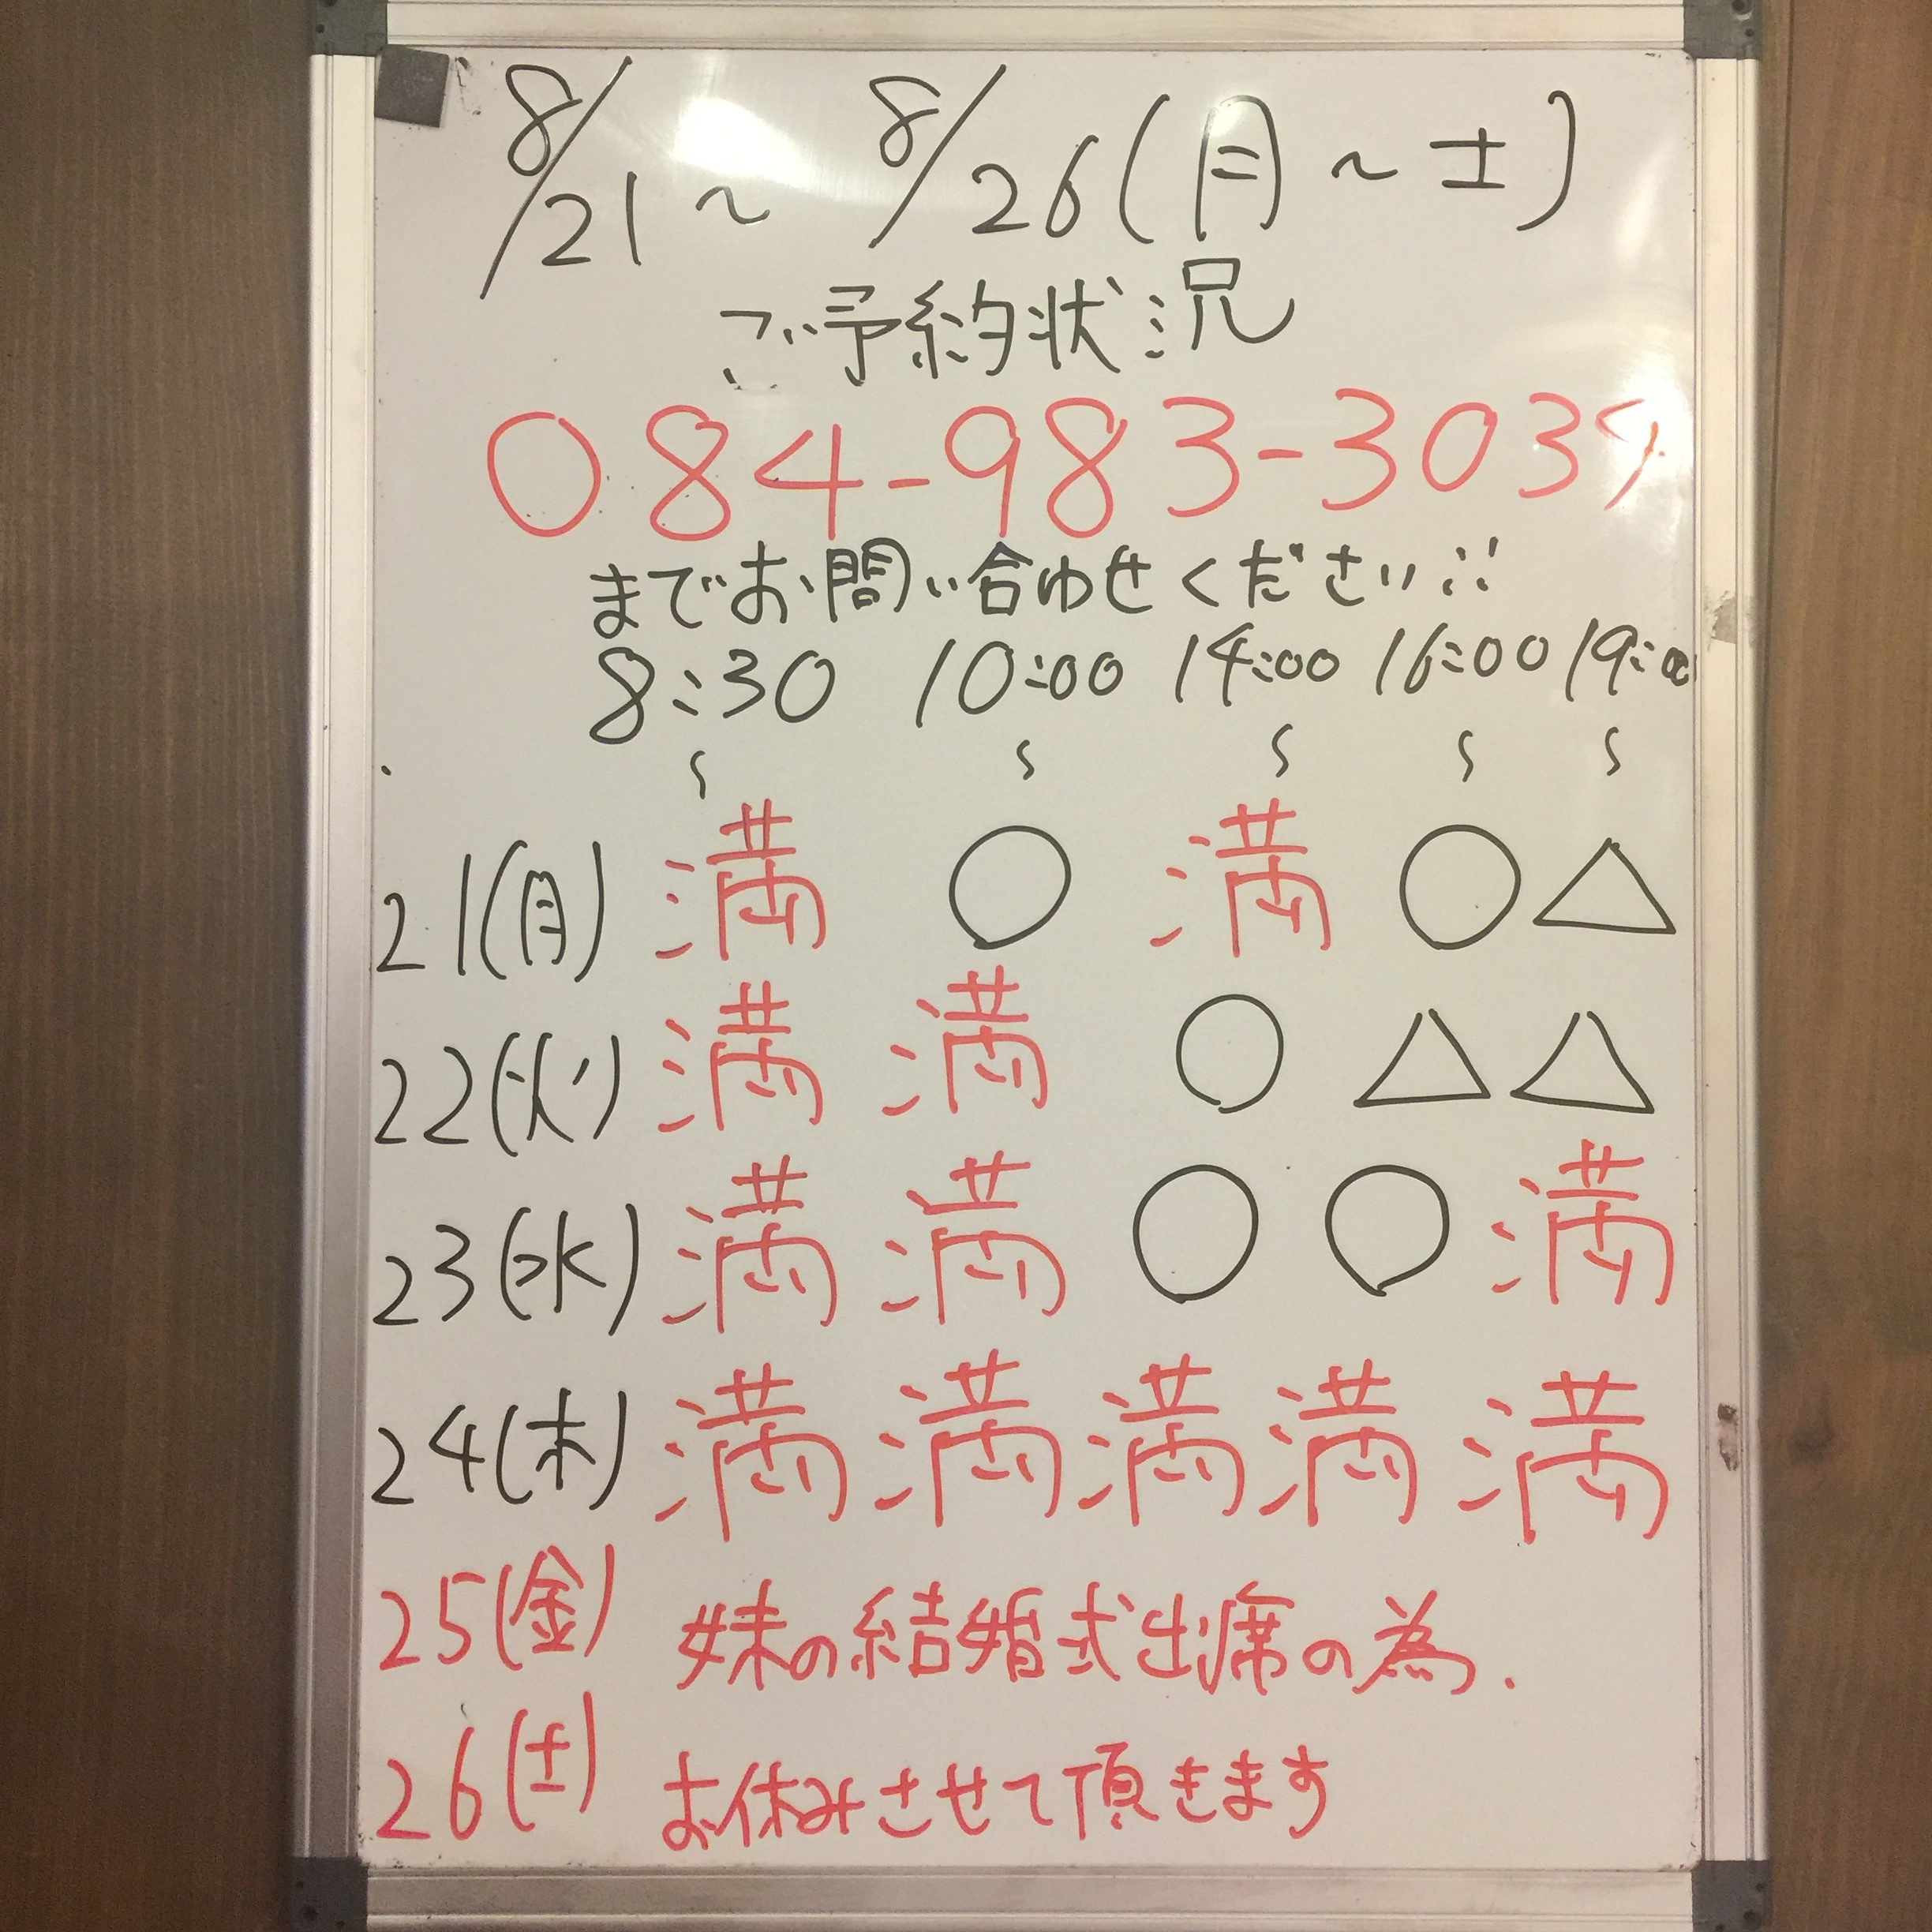 8/21～8/26(月～土)
ご予約状況
084-983-3039
までお問い合わせください!!
8:30 10:00 14:00 16:00 19:00
～ ～ ～ ～ ～
21(月) 満 ○ 満 ○ △
22(火) 満 満 ○ △ △
23(水) 満 満 ○ ○ 満
24(木) 満 満 満 満 満
25(金) 妹の結婚式出席の為.
26(土) お休みさせて頂きます